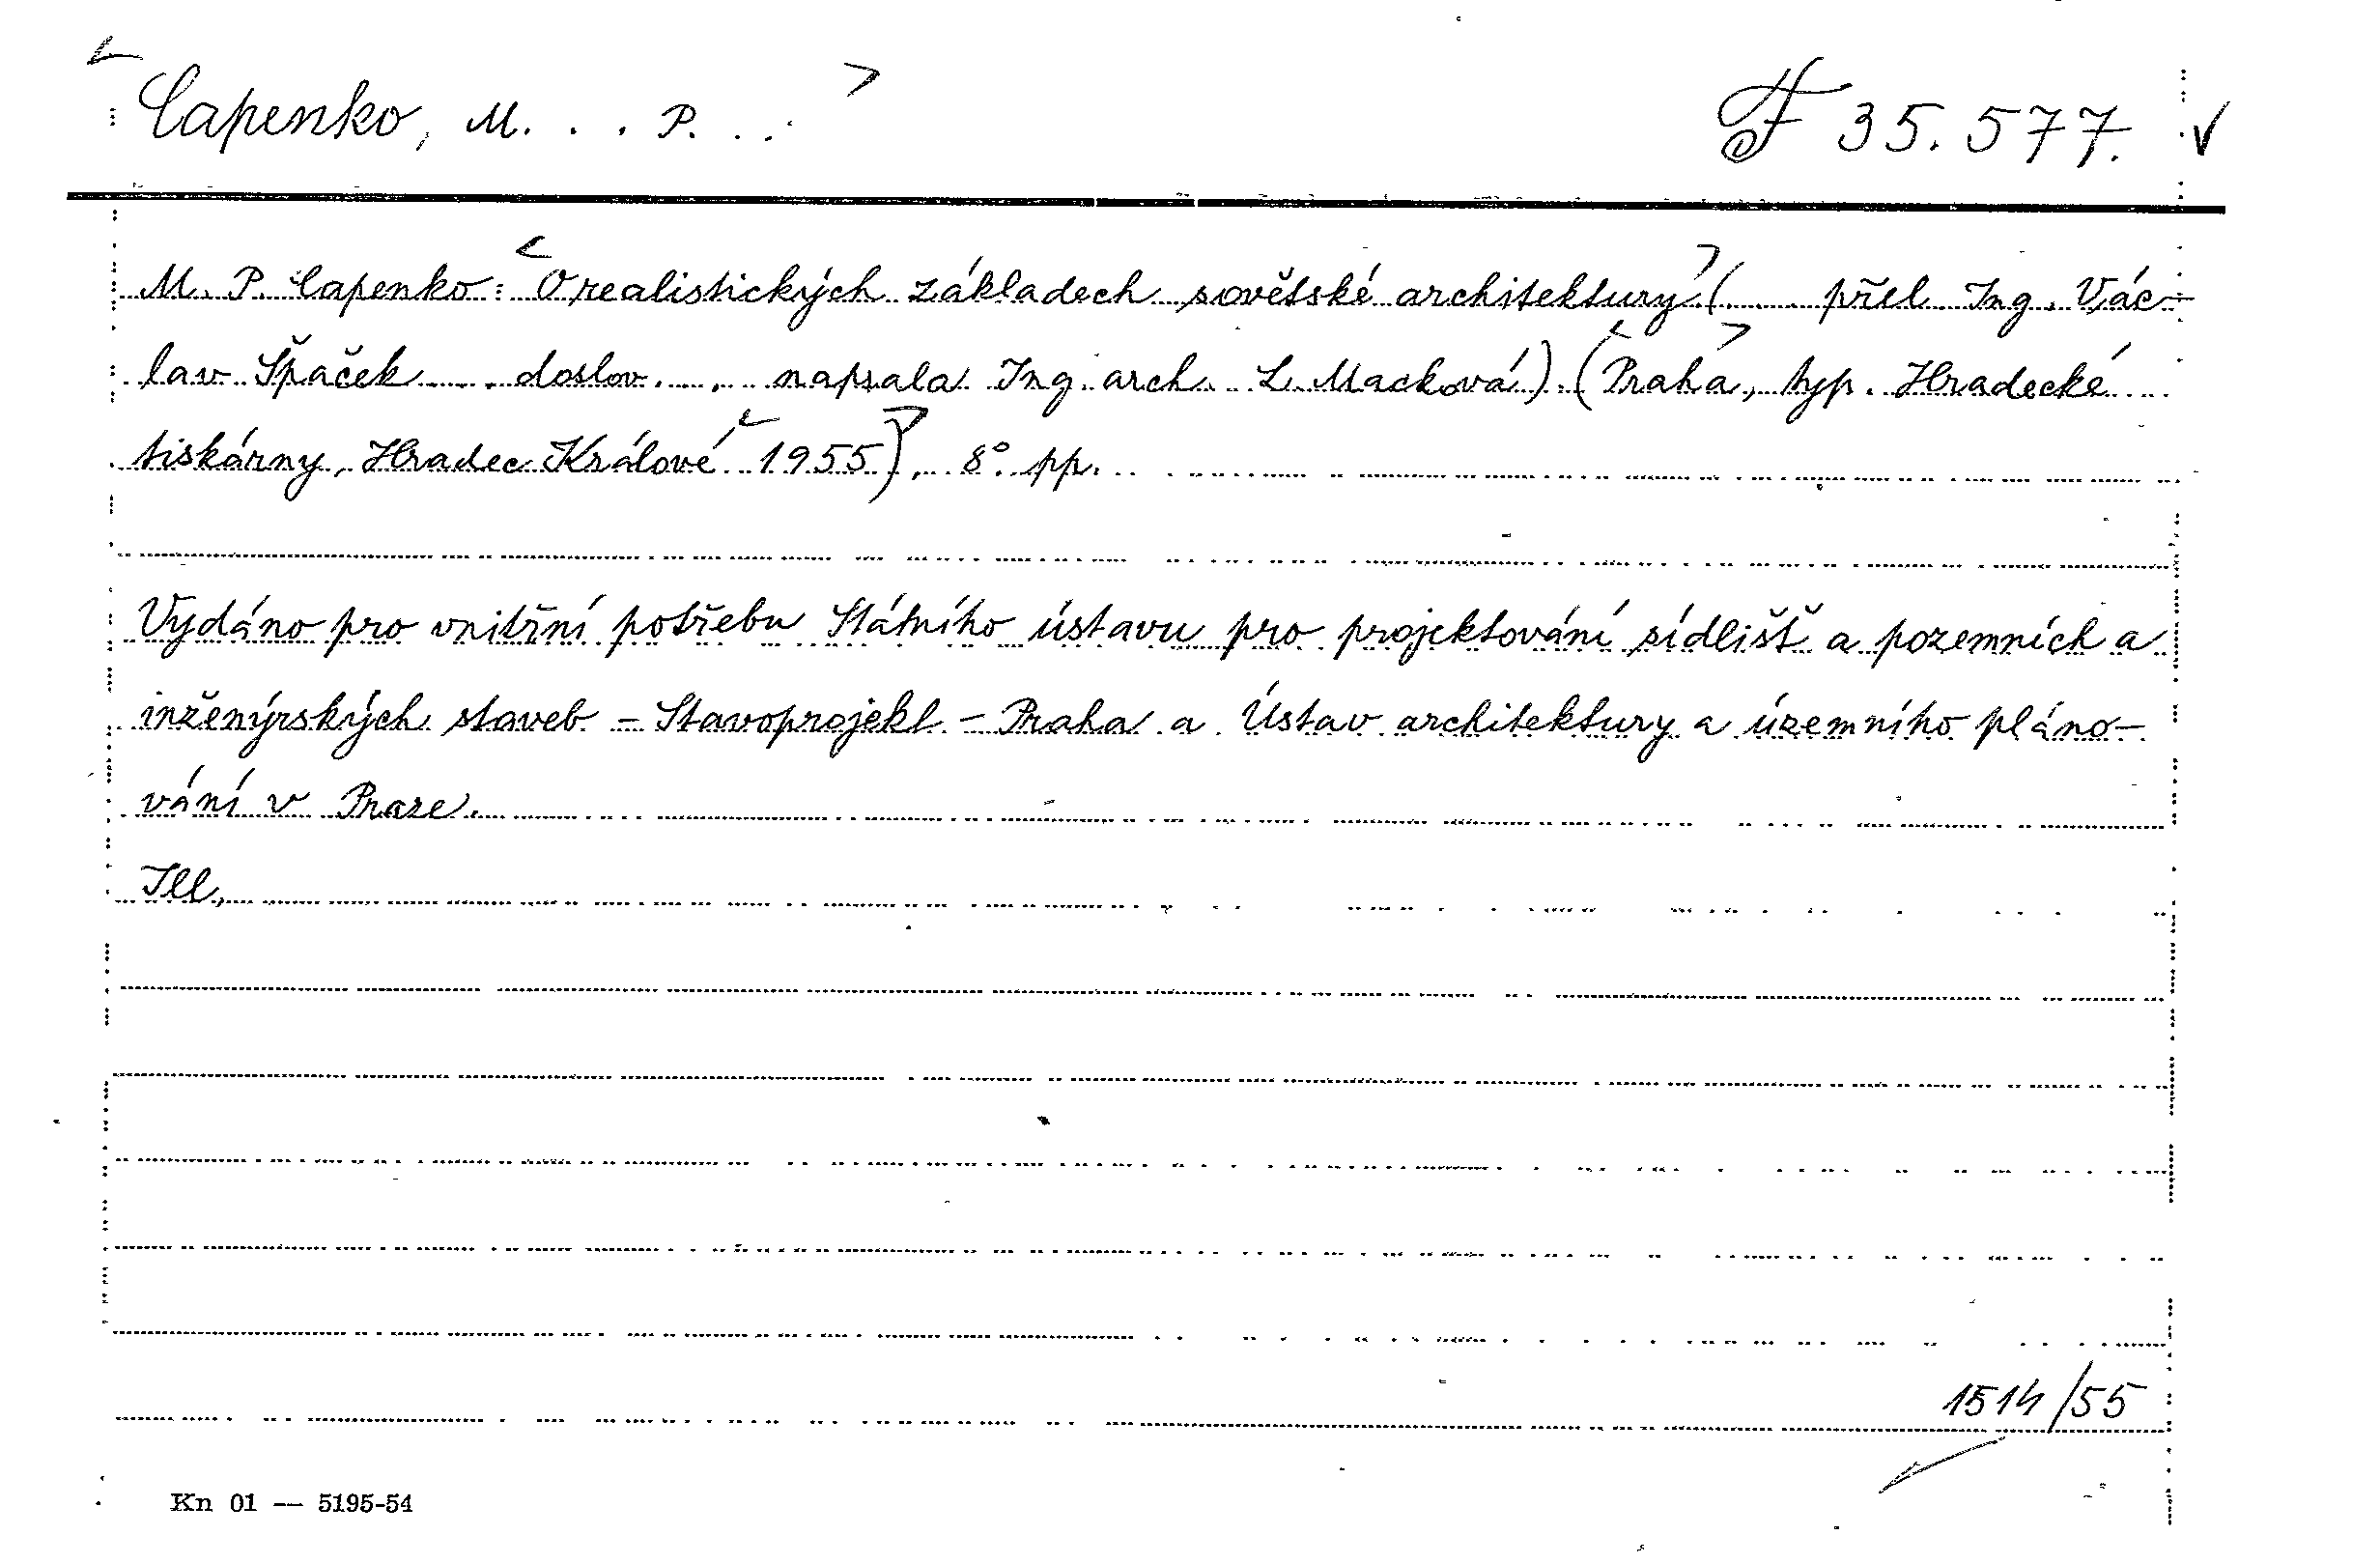 < Capenko, M. . . P. . . >
F 35.577. ✓
M. P. Capenko: <O realistických základech sovětské architektury> ( . . přel. Ing. Vác-
lav Špaček . . . doslov . . . napsala Ing. arch. L. Macková). (<Praha>, typ. Hradecké
tiskárny, Hradec Králové <1955>), 8°. pp.
Vydáno pro vnitřní potřebu Státního ústavu pro projektování sídlišť a pozemních a
inženýrských staveb – Stavoprojekt – Praha a Ústav architektury a územního pláno-
vání v Praze.
Ill.
1514/55
Kn 01 — 5195-54